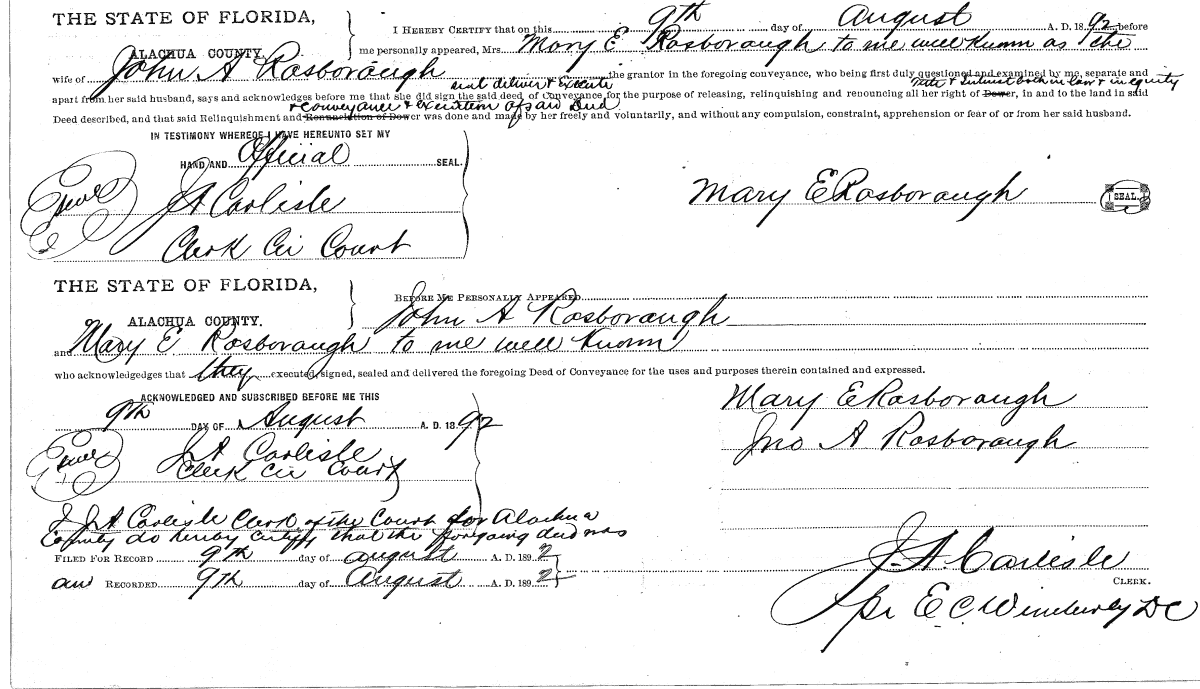 THE STATE OF FLORIDA,
ALACHUA COUNTY.
I HEREBY CERTIFY that on this 9th day of August A. D. 1892 before
me personally appeared, Mrs. Mary E Rosborough to me well known as the
wife of John A Rosborough the grantor in the foregoing conveyance, who being first duly questioned and examined by me, separate and
and deliver & Execute title & Interest both in law & in equity
apart from her said husband, says and acknowledges before me that she did sign the said deed of Conveyance, for the purpose of releasing, relinquishing and renouncing all her right of Dower, in and to the land in said
& conveyance & execution of said Deed
Deed described, and that said Relinquishment and Renunciation of Dower was done and made by her freely and voluntarily, and without any compulsion, constraint, apprehension or fear of or from her said husband.
IN TESTIMONY WHEREOF I HAVE HEREUNTO SET MY
HAND AND Official SEAL.
Seal
J A Carlisle
Clerk Cir Court
Mary E Rosborough
SEAL.
THE STATE OF FLORIDA,
ALACHUA COUNTY.
BEFORE ME PERSONALLY APPEARED
John A Rosborough
and Mary E Rosborough to me well known
who acknowledgedges that they executed, signed, sealed and delivered the foregoing Deed of Conveyance for the uses and purposes therein contained and expressed.
ACKNOWLEDGED AND SUBSCRIBED BEFORE ME THIS
9th DAY OF August A. D. 1892
Seal
J A Carlisle
Clerk Cir Court
Mary E Rosborough
Jno A Rosborough
I J A Carlisle Clerk of the Court for Alachua
County do hereby certify that the foregoing deed was
FILED FOR RECORD 9th day of August A. D. 1892
and RECORDED 9th day of August A. D. 1892
J. A. Carlisle
CLERK.
pr E C Wimberly DC